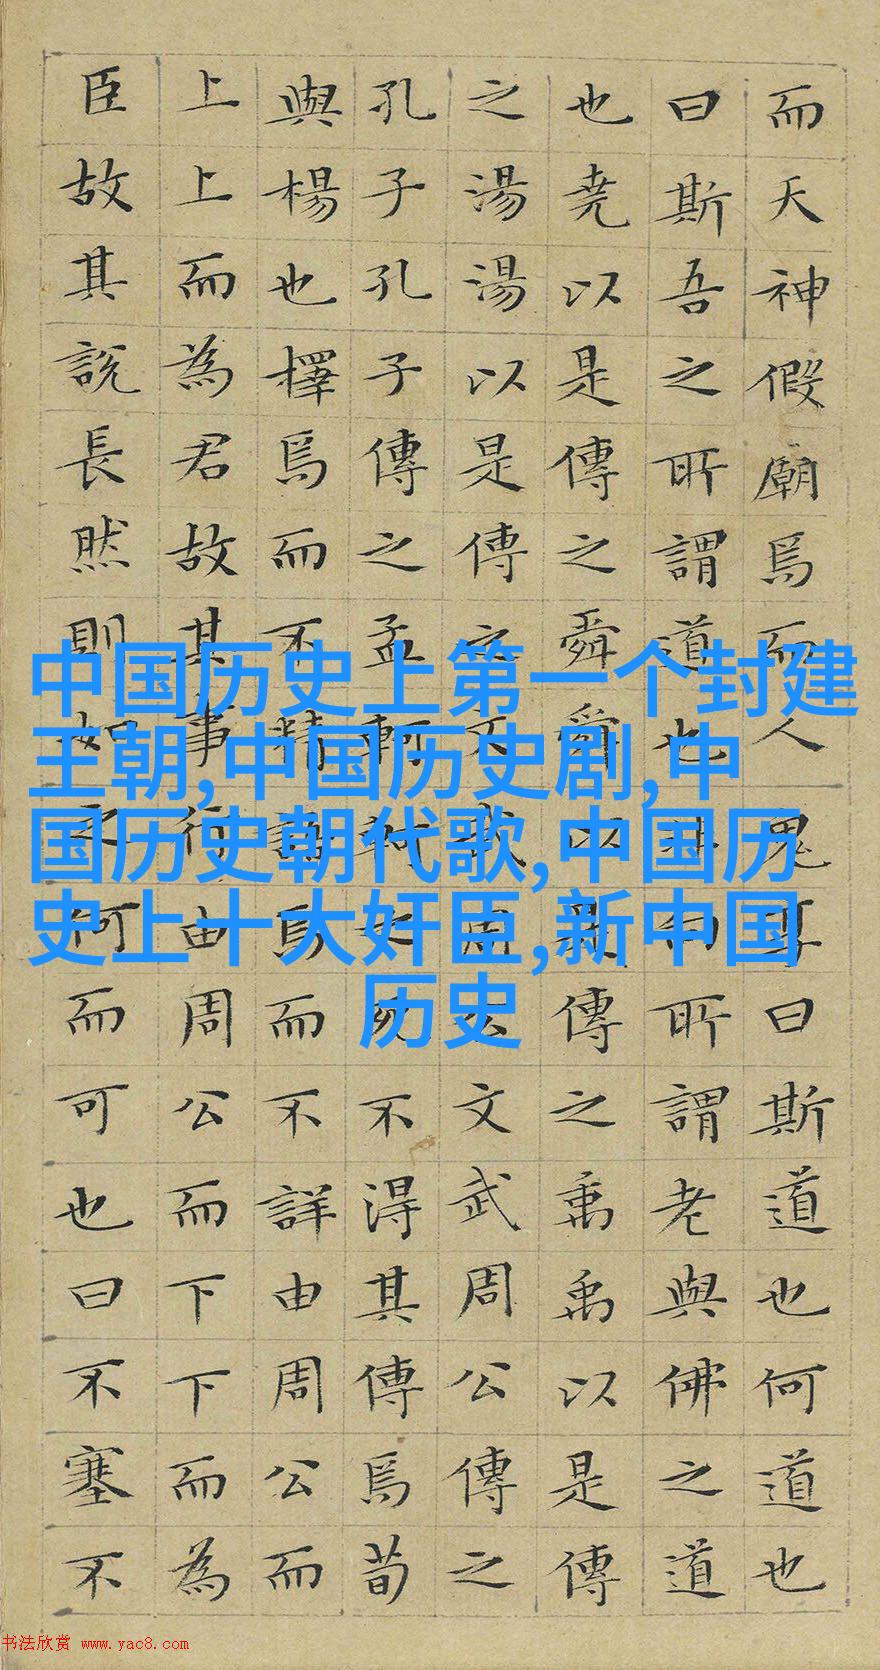 而天神假廟焉而人鬼享曰斯道也何道也
曰斯吾之所謂道也非向所謂老與佛之道
也堯以是傳之舜舜以是傳之禹禹以是傳
之湯湯以是傳之文武周公文武周公傳之
孔子孔子傳之孟軻軻之死不得其傳焉荀
與楊也擇焉而不精語焉而不詳由周公而
上上而為君故其事行由周公而下下而為
臣故其說長然則如之何而可也曰不塞不
中国历史上第一个封建
王朝,中国历史剧,中
国历史朝代歌,中国历
史上十大奸臣,新中国
历史
书法欣赏 www.yac8.com